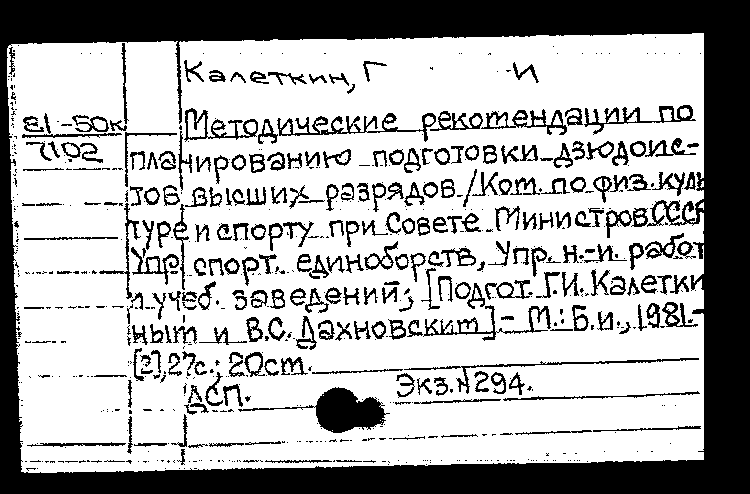 Калеткин, Г И
81-50к
7102
Методические рекомендации по
планированию подготовки дзюдоис-
тов высших разрядов /Ком. по физ. куль
туре и спорту при Совете Министров СССР
Упр спорт. единоборств, Упр. н.-и. работ
и учеб. заведений; [Подгот. Г.И. Калетки
ным и В.С. Дахновским]. - М.: Б.и., 1981.-
[2], 27с.; 20см.
ДСП. Экз. N 294.